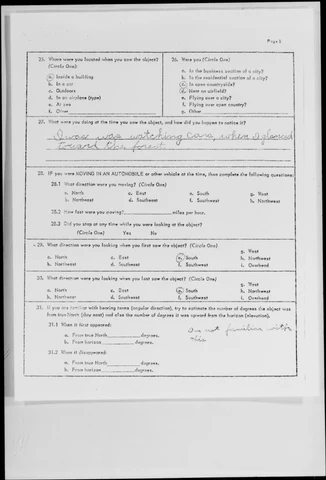 Page 3
25. Where were you located when you saw the object?
(Circle One):
a. Inside a building
b. In a car
c. Outdoors
d. In an airplane (type)
e. At sea
f. Other
26. Were you (Circle One)
a. In the business section of a city?
b. In the residential section of a city?
c. In open countryside?
d. Near an airfield?
e. Flying over a city?
f. Flying over open country?
g. Other
27. What were you doing at the time you saw the object, and how did you happen to notice it?
I was was watching cars, when I glanced
toward the forest
28. IF you were MOVING IN AN AUTOMOBILE or other vehicle at the time, then complete the following questions:
28.1 What direction were you moving? (Circle One)
a. North c. East e. South g. West
b. Northeast d. Southeast f. Southwest h. Northwest
28.2 How fast were you moving? miles per hour.
28.3 Did you stop at any time while you were looking at the object?
(Circle One) Yes No
29. What direction were you looking when you first saw the object? (Circle One)
a. North c. East e. South g. West
b. Northeast d. Southeast f. Southwest h. Northwest
30. What direction were you looking when you last saw the object? (Circle One)
a. North c. East e. South g. West
b. Northeast d. Southeast f. Southwest h. Northwest
31. If you are familiar with bearing terms (angular direction), try to estimate the number of degrees the object was
from true North (also west) and also the number of degrees it was upward from the horizon (elevation).
31.1 When it first appeared:
a. From true North degrees.
b. From horizon degrees.
am not familiar with
this
31.2 When it disappeared:
a. From true North degrees.
b. From horizon degrees.